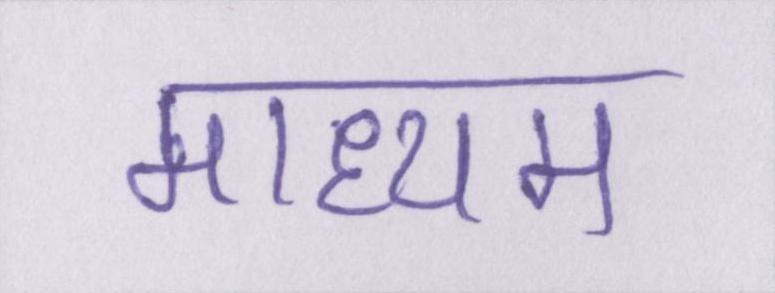 माध्यम